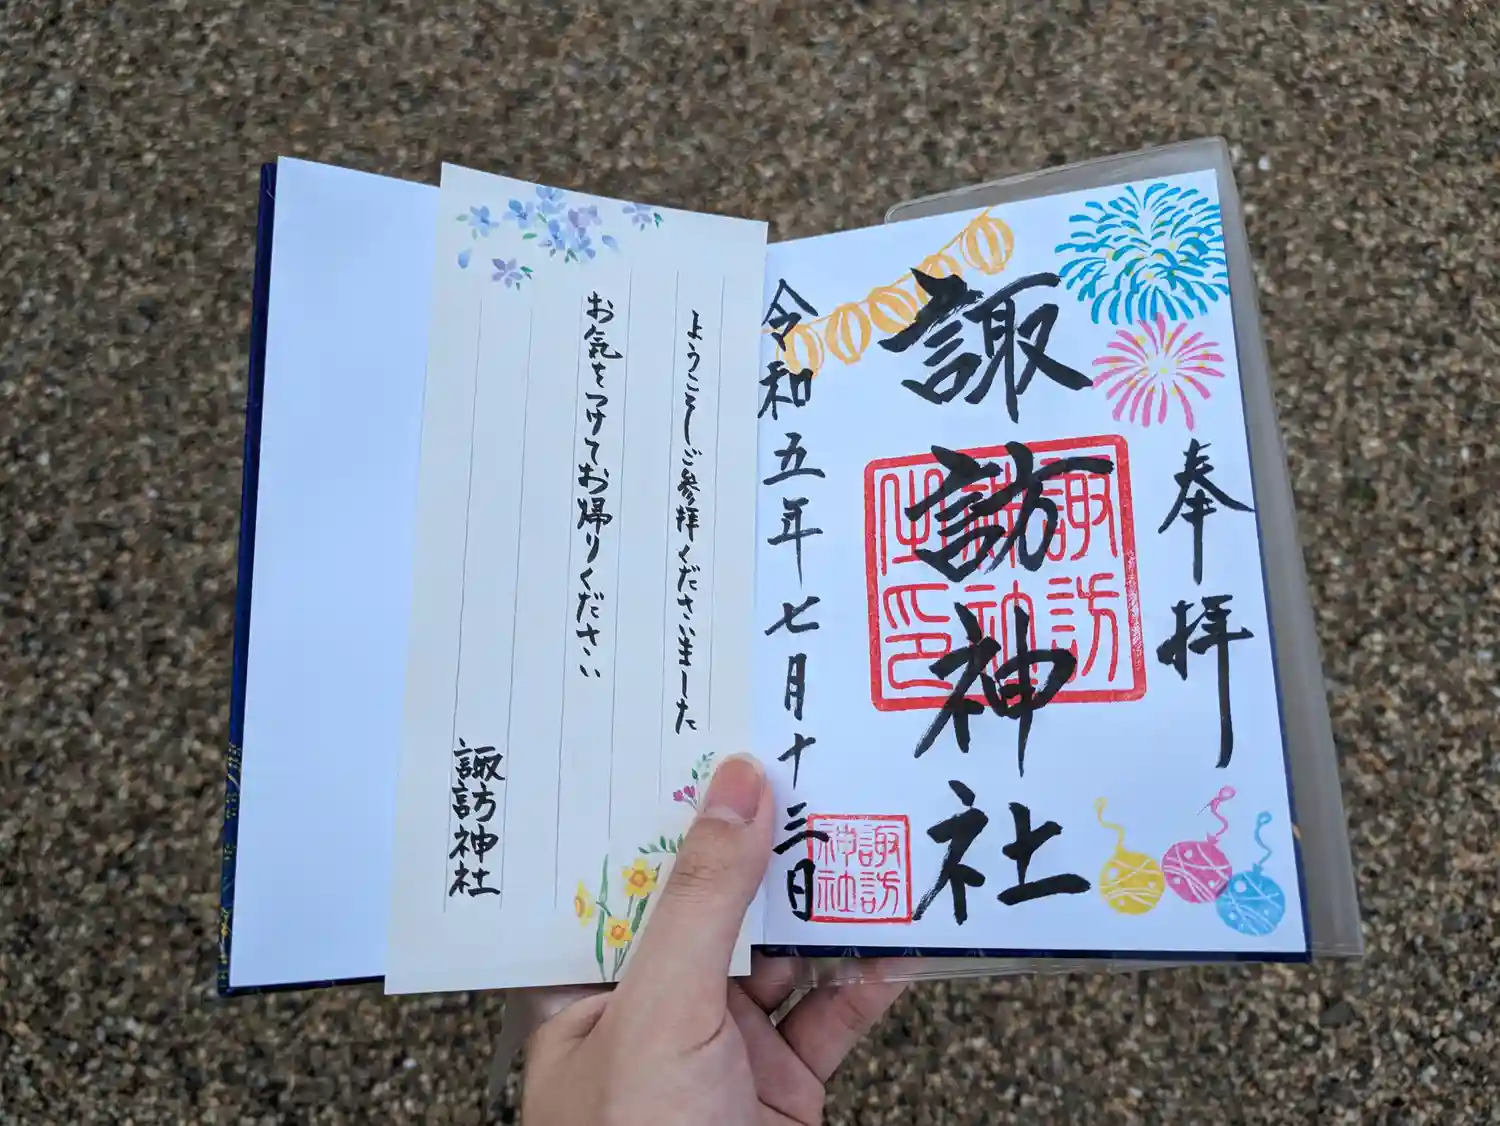 奉拝
諏訪神社
諏訪
神社
令和五年七月十三日
諏訪
神社
ようこそご参拝くださいました
お気をつけてお帰りください
諏訪神社